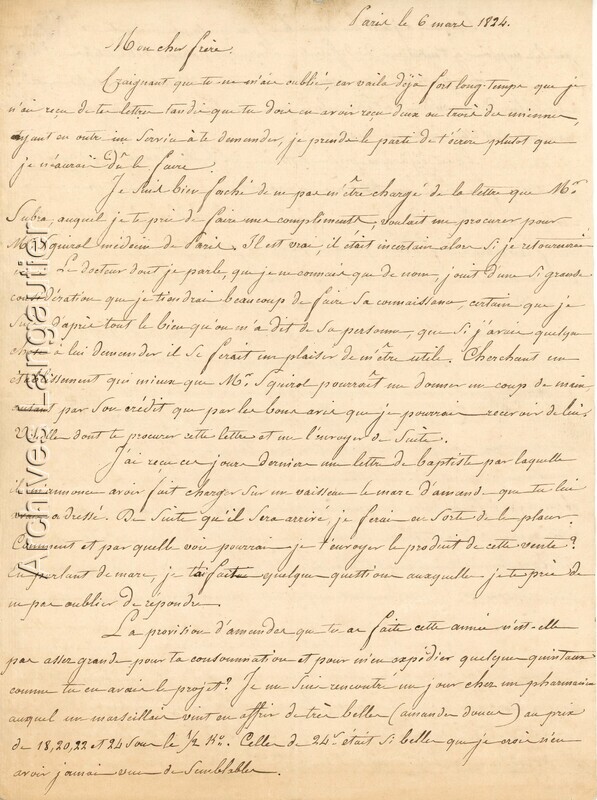 Paris le 6 mars 1834.
Mon cher frère.
Craignant que tu ne m'aie oublié, car voila déjà fort long-temps que je
n'ai reçu de tes lettres tandis que tu dois en avoir reçu deux ou trois des miennes,
ayant en outre un service à te demander, je prends le parti de t'écrire plutot que
je n'aurais dû le faire.
Je suis bien faché de ne pas m'être chargé de la lettre que Mr.
Subra, auquel je te prie de faire mes compliments, voulait me procurer pour
Mr. Squirol médecin de Paris. Il est vrai, il était incertain alors si je retournerai
Le docteur dont je parle, que je ne connais que de nom, jouit d'une si grande
considération que je tiendrai beaucoup de faire sa connaissance, certain que je
suis d'après tout le bien qu'on m'a dit de sa personne, que si j'avais quelque
chose à lui demander il se ferait un plaisir de m'être utile. Cherchant un
établissement qui mieux que Mr. Squirol pourrait me donner un coup de main
autant par son crédit que par les bons avis que je pourrais recevoir de lui,
Veuilles dont te procurer cette lettre et me l'envoyer de suite.
J'ai reçu ces jours derniers une lettre de baptiste par laquelle
il m'annonce avoir fait charger sur un vaisseau le marc d'amande que tu lui
adressé. De suite qu'il sera arrivé, je ferai en sorte de le placer.
Comment et par quelle voie pourrais je t'envoyer le produit de cette vente?
En parlant de marc, je quelques questions auxquelles je te prie de
ne pas oublier de répondre.
La provision d'amandes que tu as faite cette année n'est-elle
pas assez grande pour ta consommation et pour m'en expédier quelques quintaux
comme tu en avais le projet? Je me suis rencontré un jour chez un pharmacien
auquel un marseillais vint en offrir de très belles (amandes douces) au prix
de 18, 20, 22 et 24 sous le 1/2 Ko. Celles de 24s était si belles que je crois n'en
avoir jamais vues de semblables.
Archives Langautier